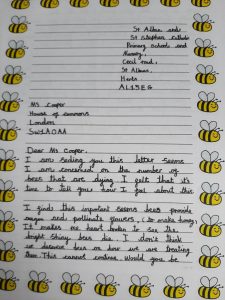 St Alban and
St Stephen Catholic
Primary School and
Nursery,
Cecil road,
St Albans,
Herts
AL1 5EG
Ms Cooper
House of commons
London
SW1A 0AA
Dear Ms Cooper,
I am sending you this letter seems
I am concerned on the number of
bees that are dying. I felt that it's
time to tell you how I feel about this
I finds this important seems bees provide
and pollinate flowers, (to make honey)
It makes me heart broken to see the
bright shiny bees die. I don't think
us deserve bees on how we are treating
them. This cannot continue. Would you be